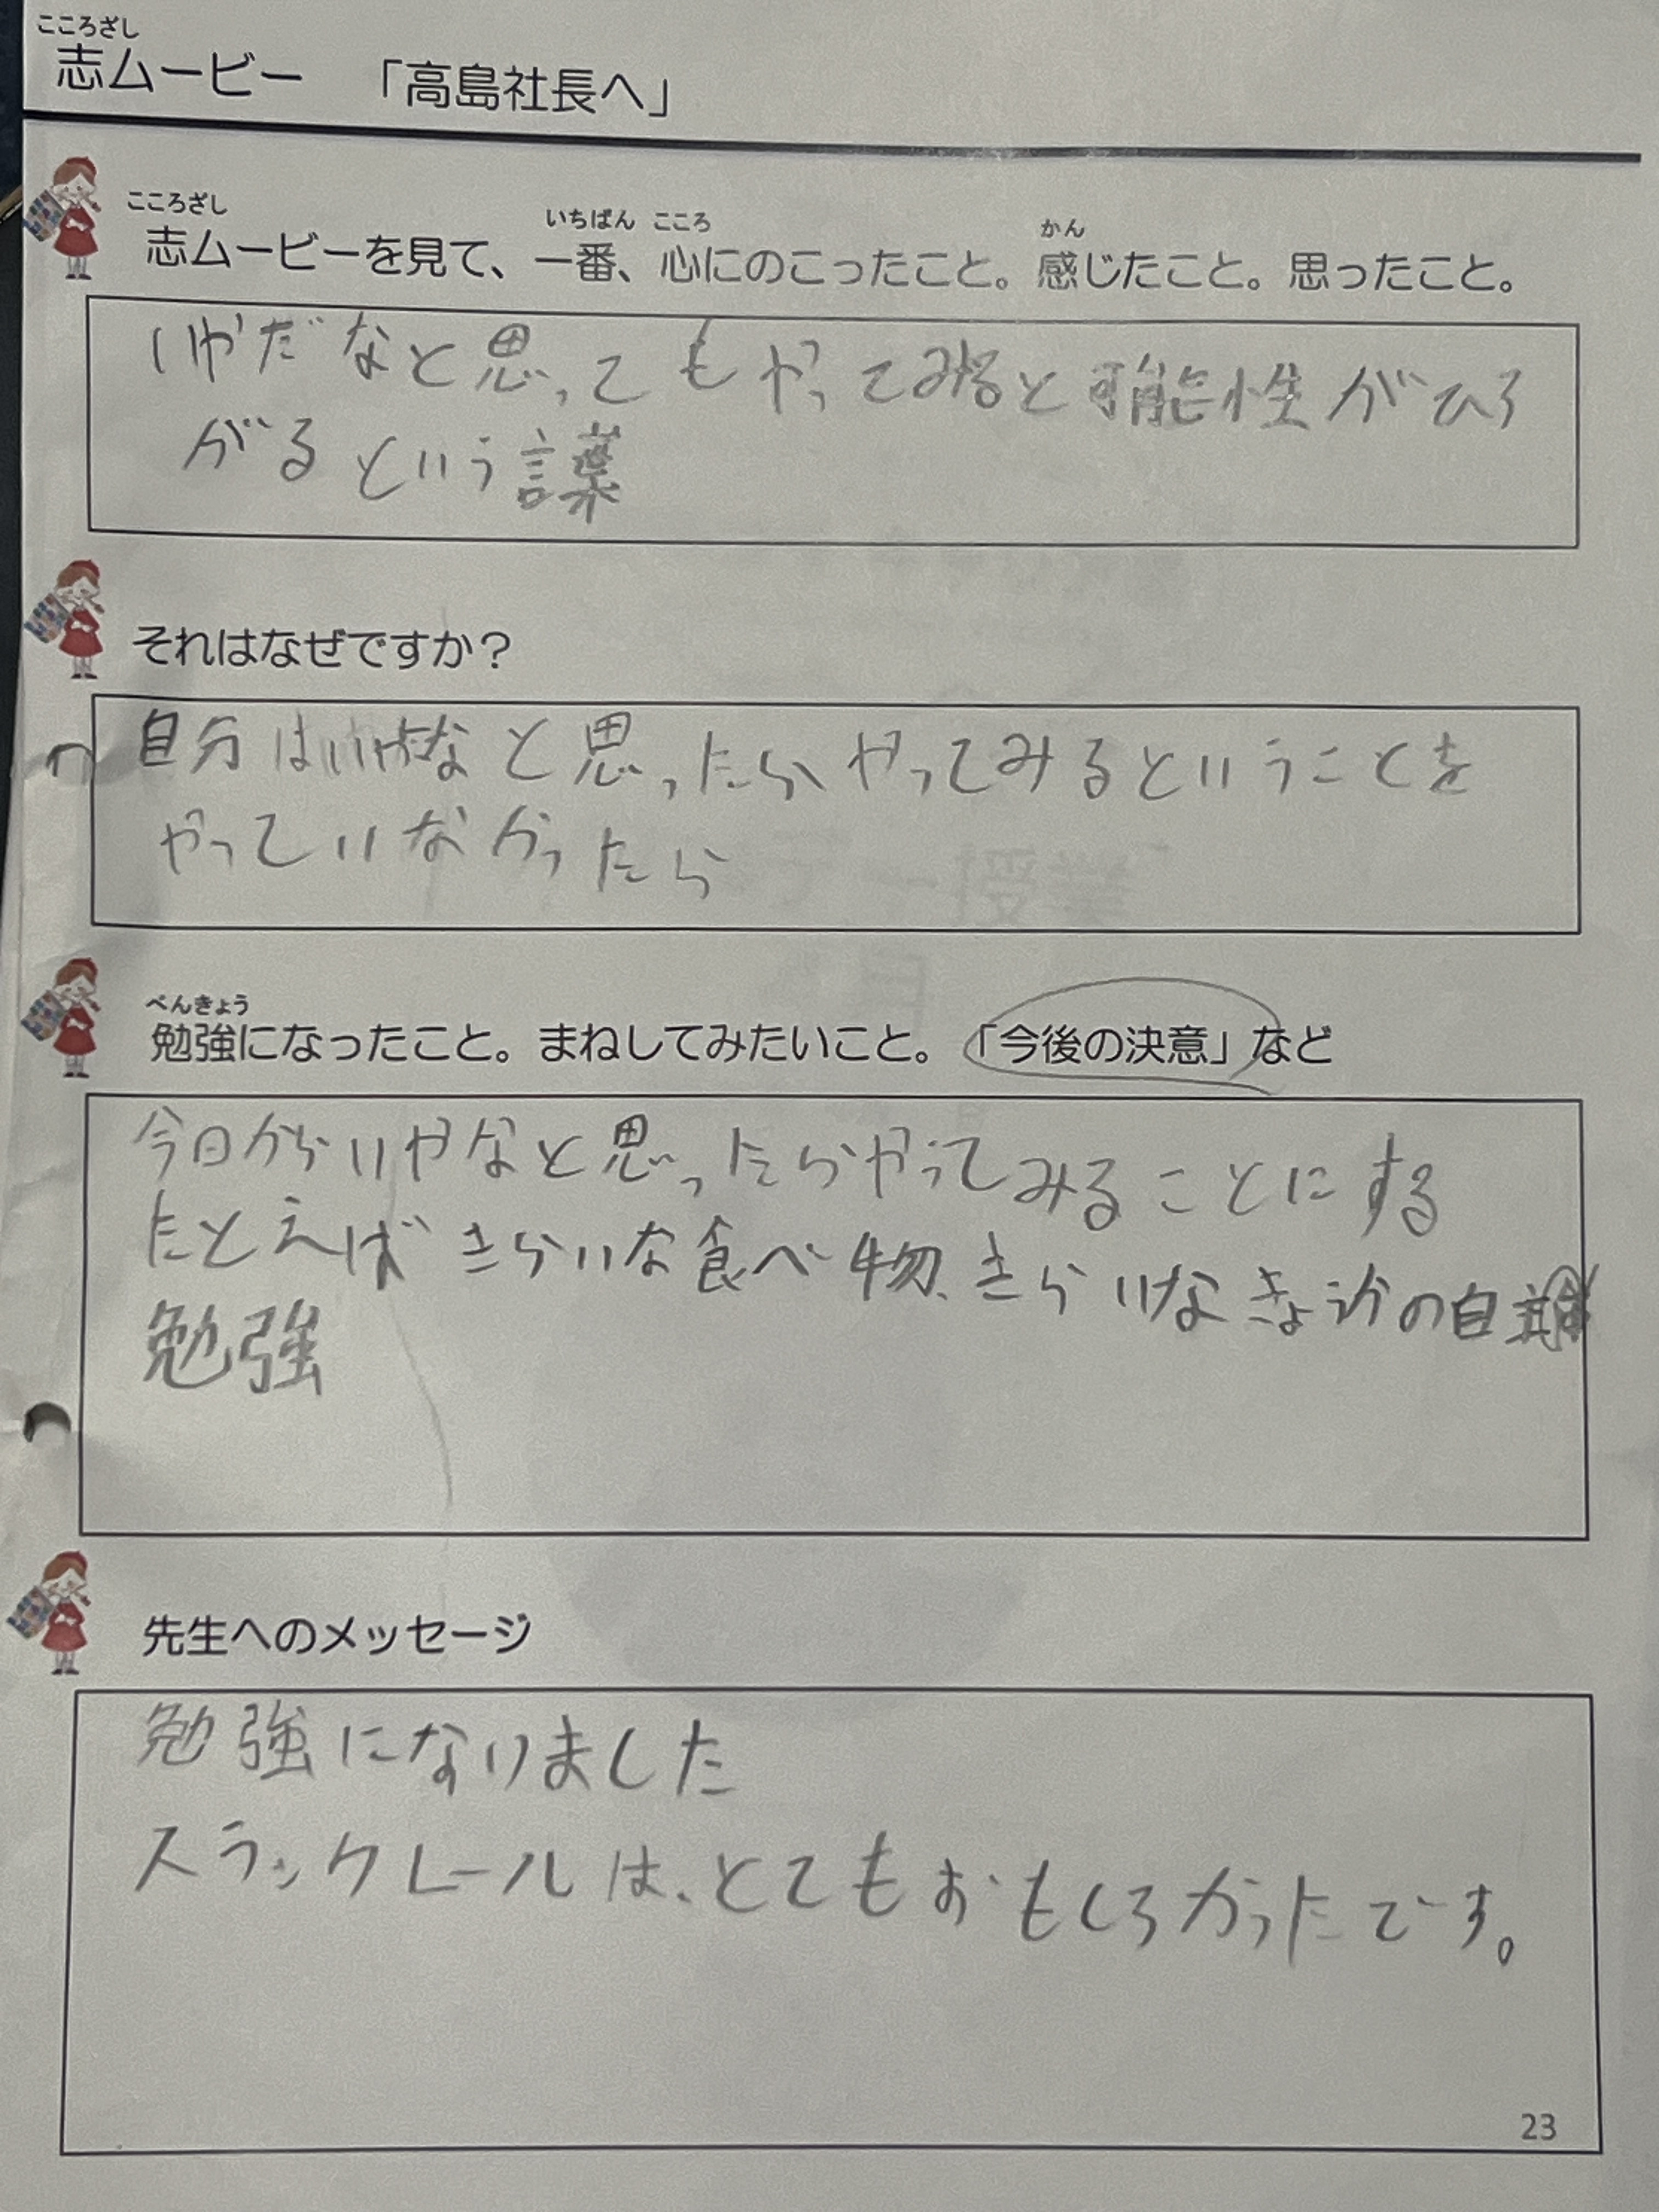 こころざし
志ムービー 「高島社長へ」
こころざし いちばん こころ かん
志ムービーを見て、一番、心にのこったこと。感じたこと。思ったこと。
いやだなと思ってもやってみると可能性がひろ
がるという言葉
それはなぜですか？
自分はいやなと思ったらやってみるということを
やっていなかったら
べんきょう
勉強になったこと。まねしてみたいこと。「今後の決意」など
今日からいやなと思ったらやってみることにする
たとえばきらいな食べ物、きらいなきょうかの自
勉強
先生へのメッセージ
勉強になりました
スラックレールは、とてもおもしろかったです。
23